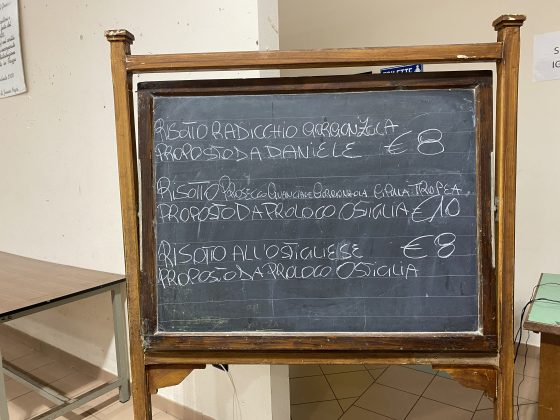 TOILETTE
S
IG
RISOTTO RADICCHIO GORGONZOLA
PROPOSTO DA DANIELE € 8
RISOTTO PROSECCO GUANCIALE GORGONZOLA CIPOLLA TROPEA
PROPOSTO DA PROLOCO OSTIGLIA €10
RISOTTO ALL'OSTIGLIESE €8
PROPOSTO DA PROLOCO OSTIGLIA